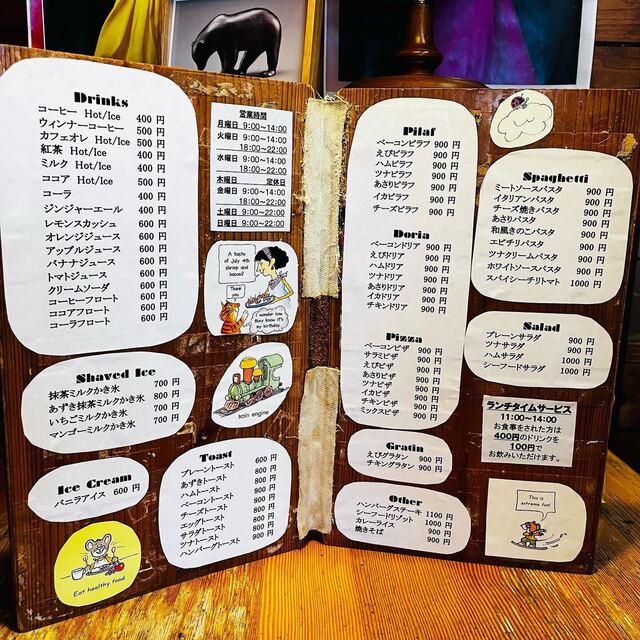 Drinks
コーヒー Hot/Ice 400 円
ウィンナーコーヒー 500 円
カフェオレ Hot/Ice 500 円
紅茶 Hot/Ice 400 円
ミルク Hot/Ice 400 円
ココア Hot/Ice 500 円
コーラ 400 円
ジンジャーエール 400 円
レモンスカッシュ 600 円
オレンジジュース 600 円
アップルジュース 600 円
バナナジュース 600 円
トマトジュース 600 円
クリームソーダ 600 円
コーヒーフロート 600 円
ココアフロート 600 円
コーラフロート 600 円
Shaved Ice
抹茶ミルクかき氷 700 円
あずき抹茶ミルクかき氷 800 円
いちごミルクかき氷 700 円
マンゴーミルクかき氷 700 円
Ice Cream
バニラアイス 600 円
Eat healthy food.
営業時間
月曜日 9:00~14:00
火曜日 9:00~14:00
18:00~22:00
水曜日 9:00~14:00
18:00~22:00
木曜日 定休日
金曜日 9:00~14:00
18:00~22:00
土曜日 9:00~22:00
日曜日 9:00~22:00
A taste
of July 4th
shrimp and
bacon?
Thank
you
I wonder how
they know it's
my birthday.
train engine
Toast
プレーントースト 600 円
あずきトースト 800 円
ハムトースト 800 円
ベーコントースト 800 円
チーズトースト 800 円
エッグトースト 800 円
サラダトースト 800 円
ツナトースト 800 円
ハンバーグトースト 900 円
Pilaf
ベーコンピラフ 900 円
えびピラフ 900 円
ハムピラフ 900 円
ツナピラフ 900 円
あさりピラフ 900 円
イカピラフ 900 円
チーズピラフ 900 円
Doria
ベーコンドリア 900 円
えびドリア 900 円
ハムドリア 900 円
ツナドリア 900 円
あさりドリア 900 円
イカドリア 900 円
チキンドリア 900 円
Pizza
ベーコンピザ 900 円
サラミピザ 900 円
えびピザ 900 円
あさりピザ 900 円
ツナピザ 900 円
イカピザ 900 円
チキンピザ 900 円
ミックスピザ 900 円
Gratin
えびグラタン 900 円
チキングラタン 900 円
Other
ハンバーグステーキ 1100 円
シーフードリゾット 1000 円
カレーライス 900 円
焼きそば 900 円
Spaghetti
ミートソースパスタ 900 円
イタリアンパスタ 900 円
チーズ焼きパスタ 900 円
あさりパスタ 900 円
和風きのこパスタ 900 円
エビチリパスタ 900 円
ツナクリームパスタ 900 円
ホワイトソースパスタ 900 円
スパイシーチリトマト 1000 円
Salad
プレーンサラダ 900 円
ツナサラダ 900 円
ハムサラダ 1000 円
シーフードサラダ 1000 円
ランチタイムサービス
11:00~14:00
お食事をされた方は
400円のドリンクを
100円で
お飲みいただけます。
This is
extreme fun!